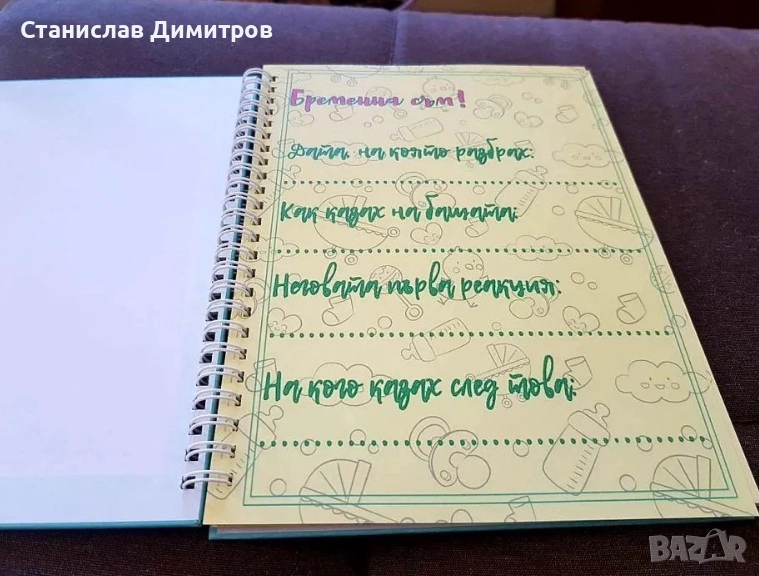 Станислав Димитров
Бременна съм!
Дата, на която разбрах:
Как казах на бащата:
Неговата първа реакция:
На кого казах след това:
BAZAR